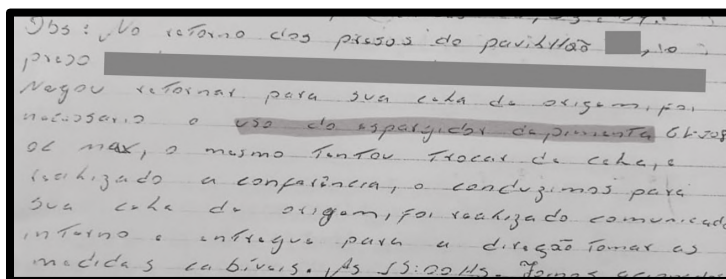 Obs: No retorno dos presos do pavilhão , o
preso
Negou retornar para sua cela de origem, foi
necessario o uso do espargidor de pimenta GL-308
OC MAX, o mesmo Tentou Trocar de cela, e
realizado a conferência, o conduzimos para
sua cela de origem, foi realizado comunicado
interno e entregue para a direção Tomar as
medidas cabíveis. Às 15:00Hs. Fomos